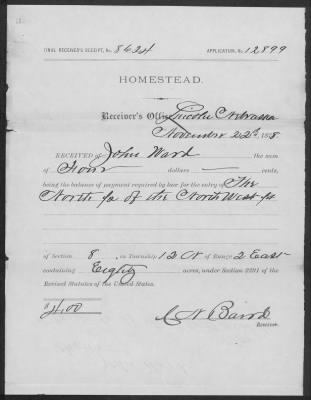 FINAL RECEIVER'S RECEIPT, No. 8634 APPLICATION, No. 12899
HOMESTEAD.
Receiver's Office, Lincoln Nebraska
November 22d, 1878
RECEIVED of John Ward the sum
of Four dollars — cents,
being the balance of payment required by law for the entry of The
North ½ of the North West ¼
of Section 8, in Township 12 N of Range 2 East
containing Eighty acres, under Section 2291 of the
Revised Statutes of the United States.
$4.00
Receiver.